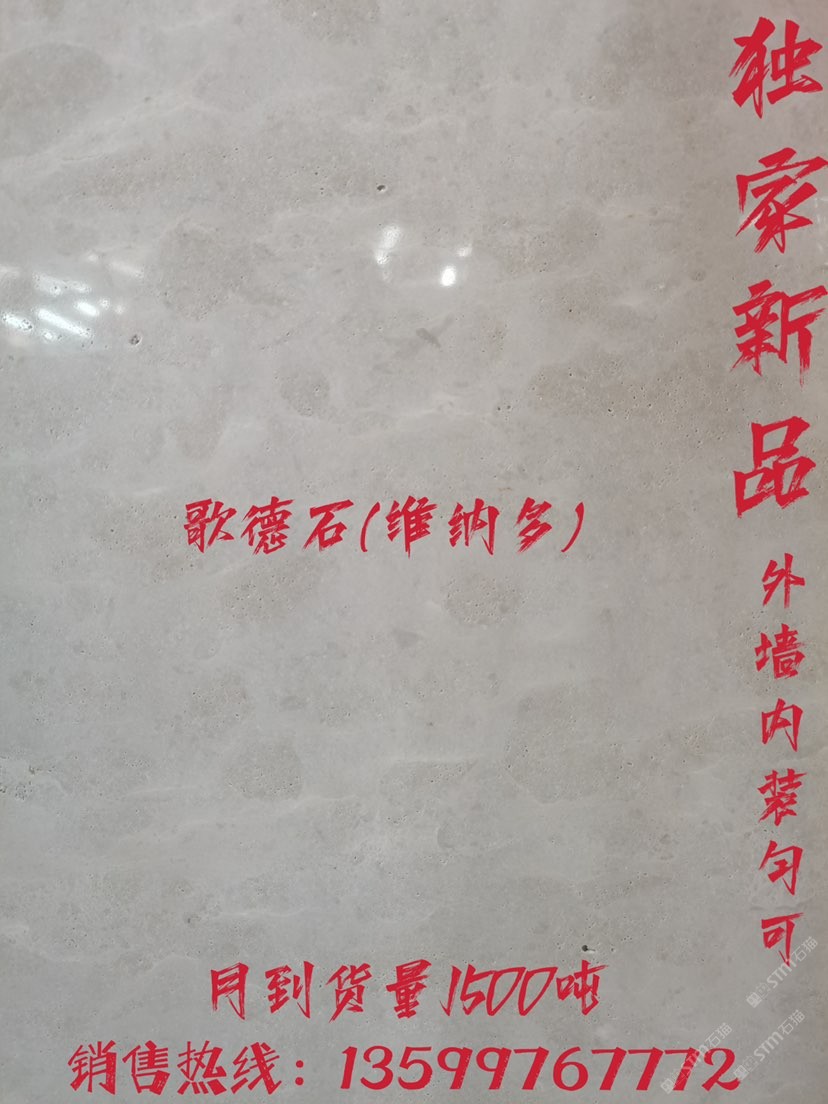 独家新品
外墙内装匀可
歌德石(维纳多)
月到货量1500吨
销售热线：13599767772
STM石猫
STM石猫